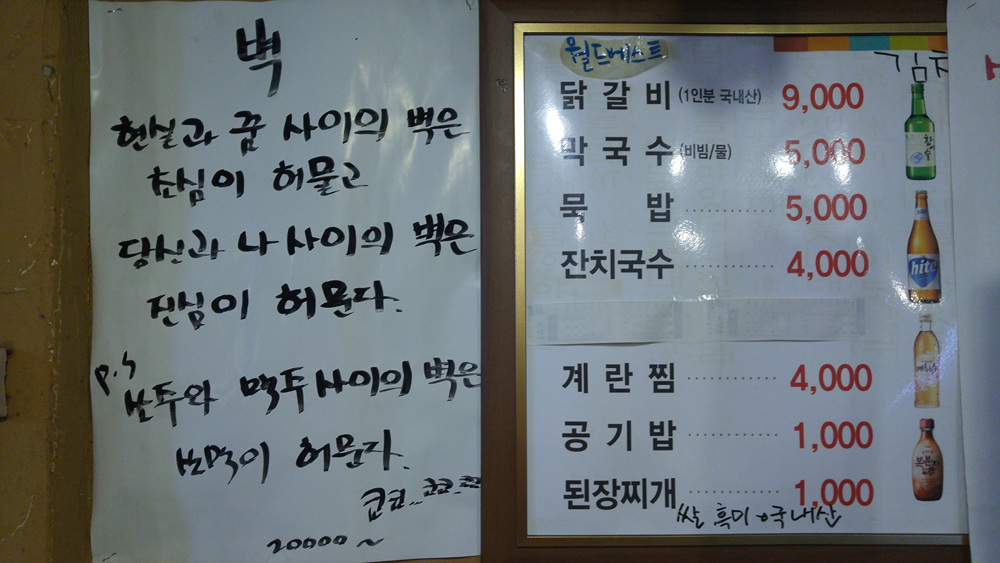 벽
현실과 꿈 사이의 벽은
초심이 허물고
당신과 나 사이의 벽은
진심이 허문다.
p.s
소주와 맥주 사이의 벽은
쏘맥이 허문다.
쿄쿄.. 쿄쿄.. 쿄
20000~
월드베스트
닭갈비 (1인분 국내산) 9,000
막국수 (비빔/물) 5,000
묵밥 5,000
잔치국수 4,000
계란찜 4,000
공기밥 1,000
된장찌개 1,000
쌀 흑미 국내산
hite